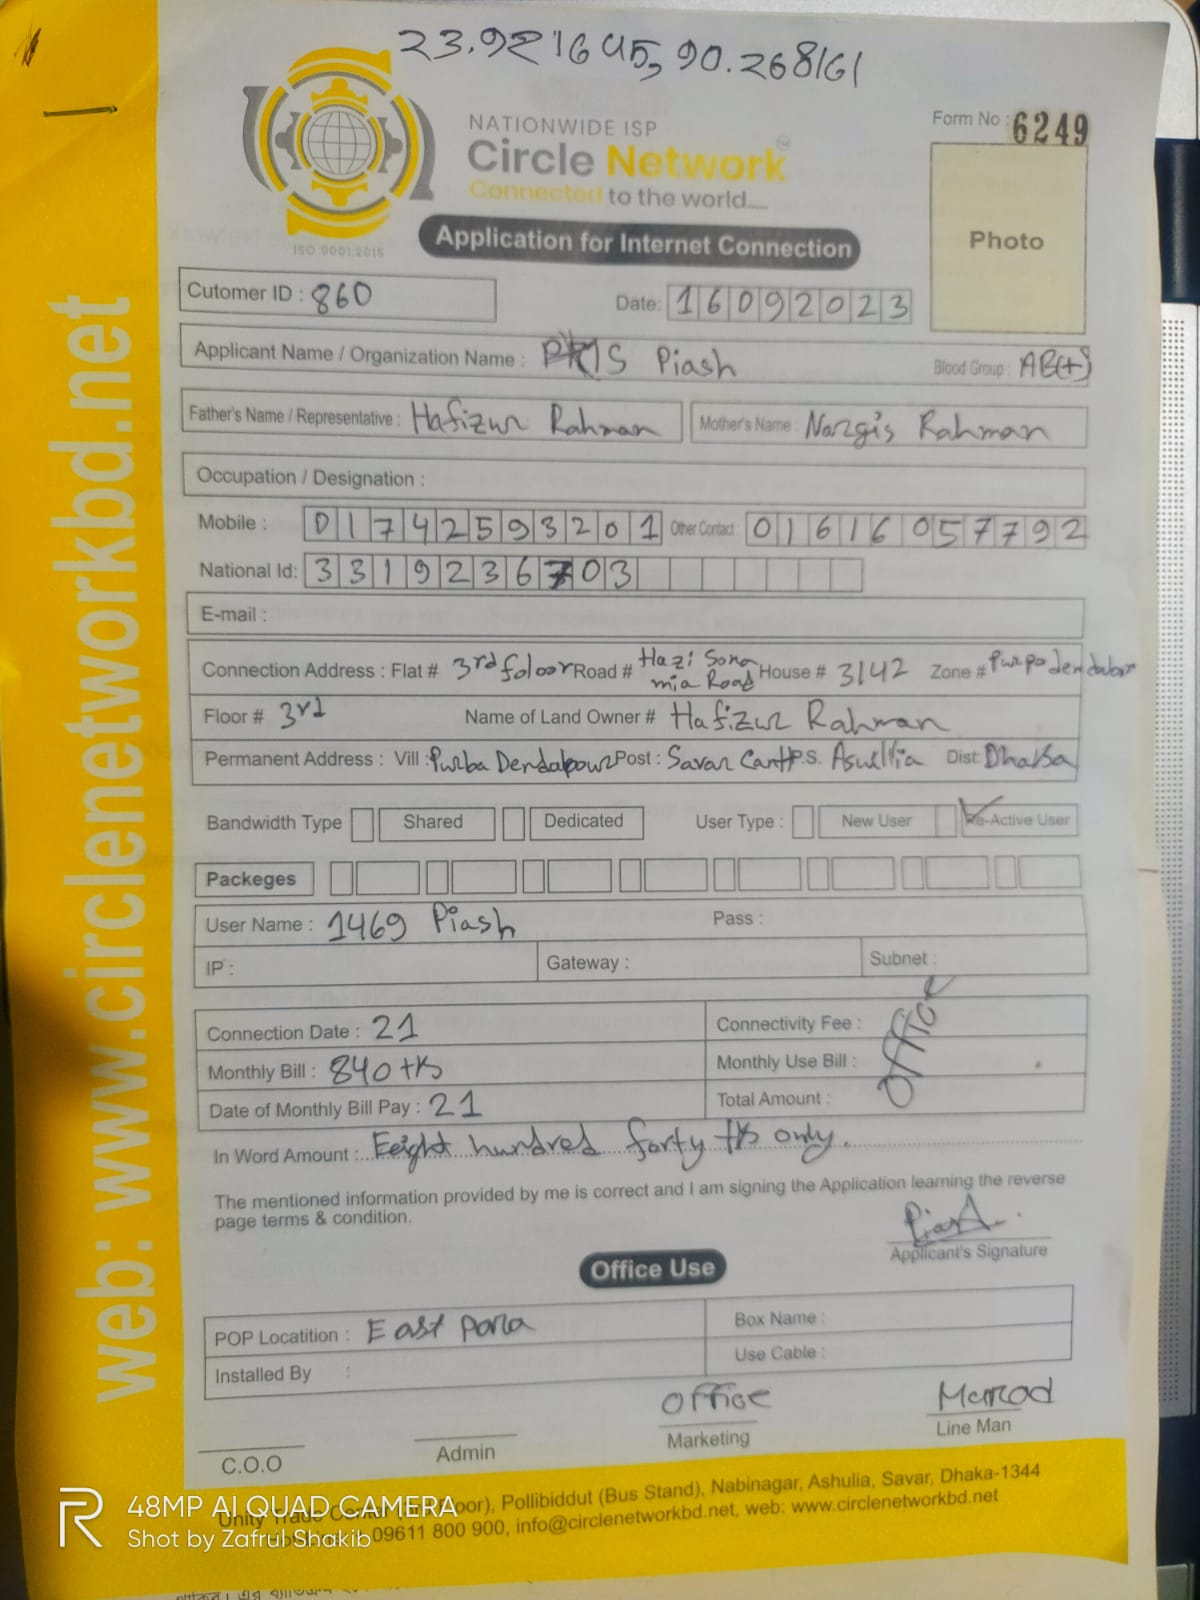 23.921645, 90.268161
NATIONWIDE ISP
Circle Network
Connected to the world.....
ISO 9001:2015
Form No : 6249
Photo
Application for Internet Connection
Cutomer ID : 860
Date: 16092023
Applicant Name / Organization Name : S Piash
Blood Group : AB(+)
Father's Name / Representative : Hafizur Rahman
Mother's Name : Nargis Rahman
Occupation / Designation :
Mobile : 01742593201 Other Contact : 01616057792
National Id: 3319236703
E-mail :
Connection Address : Flat # 3rd foloor Road # Hazi Sona mia Road House # 3142 Zone # Purpo dendabor
Floor # 3rd Name of Land Owner # Hafizur Rahman
Permanent Address : Vill : Purba Dendabour Post : Savar Cantt P.S. Asullia Dist: Dhaka
Bandwidth Type Shared Dedicated User Type : New User Re-Active User
Packeges
User Name : 1469 Piash Pass :
IP : Gateway : Subnet :
Connection Date : 21 Connectivity Fee :
Monthly Bill : 840 tk Monthly Use Bill :
Date of Monthly Bill Pay : 21 Total Amount :
Office
In Word Amount : Eeight hundred forty tk only.
The mentioned information provided by me is correct and I am signing the Application learning the reverse
page terms & condition.
Piash
Applicant's Signature
Office Use
POP Locatition : East para Box Name :
Installed By : Use Cable :
Office
C.O.O Admin Marketing Line Man
(Bus Stand), Nabinagar, Ashulia, Savar, Dhaka-1344
09611 800 900, info@circlenetworkbd.net, web: www.circlenetworkbd.net
web: www.circlenetworkbd.net
48MP AI QUAD CAMERA
Shot by Zafrul Shakib